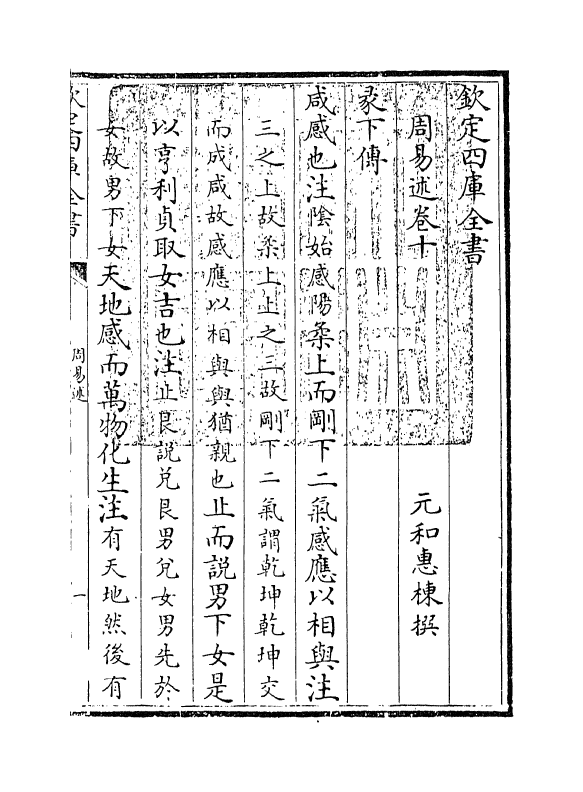 欽定四庫全書
周易述卷十
元和惠棟撰
彖下傳
咸感也注陰始感陽柔上而剛下二氣感應以相與注
三之上故柔上上之三故剛下二氣謂乾坤乾坤交
而成咸故感應以相與與猶親也止而説男下女是
以亨利貞取女吉也注止艮説兌艮男兌女男先於
女故男下女天地感而萬物化生注有天地然後有
欽定四庫全書
周易述
一